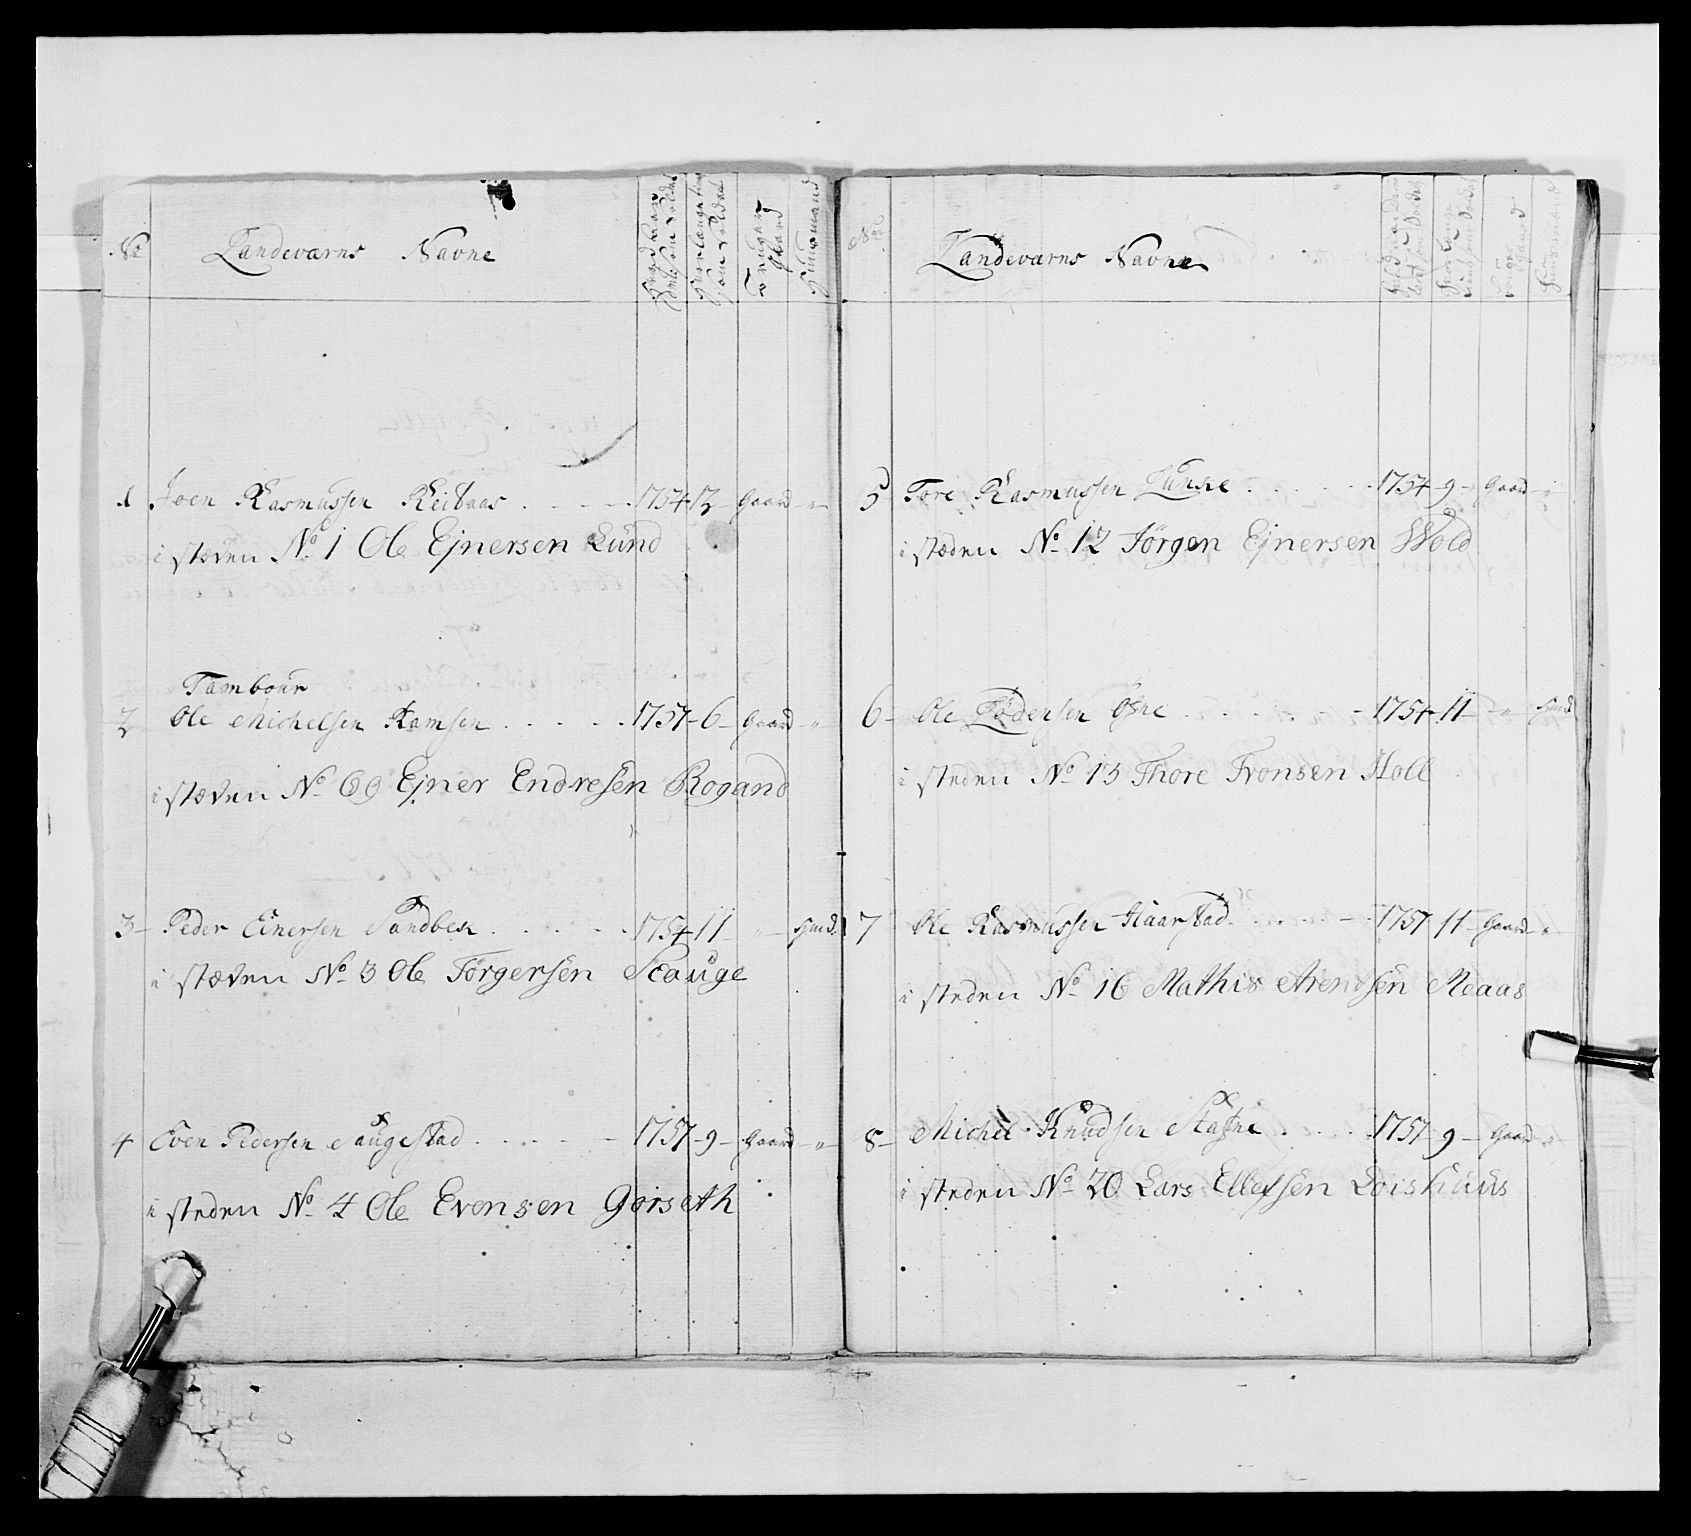 No
Landeværns Navne
Bruger Gaard
Huusmand
1 Joen Rasmussen Reitaas . . . . 1754 - 12 - Gaard - "
i stæden No 1 Ole Ejnersen Lund
Tambour
2 Ole Michelsen Ramsen . . . . . 1757 - 6 - Gaard - "
i stæden No 69 Ejner Endresen Rogand
3 - Peder Einersen Sandbek . . . . . 1754 - 11 - " - Huusd
i stæden No 3 Ole Jørgersen Scauge
4 Even Pedersen Saugestad . . . . . 1757 - 9 - Gaard - "
i steden No 4 Ole Evensen Gorseth
No
Landeværns Navne
Bruger Gaard
Huusmand
5 Tore Rasmussen Lunke . . . . . 1754 - 9 - Gaard - "
i stæden No 12 Jørgen Ejnersen Wold
6 - Ole Pedersen Øsne . . . . . 1754 - 11 - " - Huusd
i steden No 13 Thore Tronsen Holl
7 Ole Rasmussen Haarstad . . . . . 1757 - 11 - Gaard - "
i steden No 16 Mathis Arentsen Meaas
8 - Michel Knudsen Stafne . . . . 1757 - 9 - Gaard - "
i steden No 20 Lars Ellefsen Loishuus